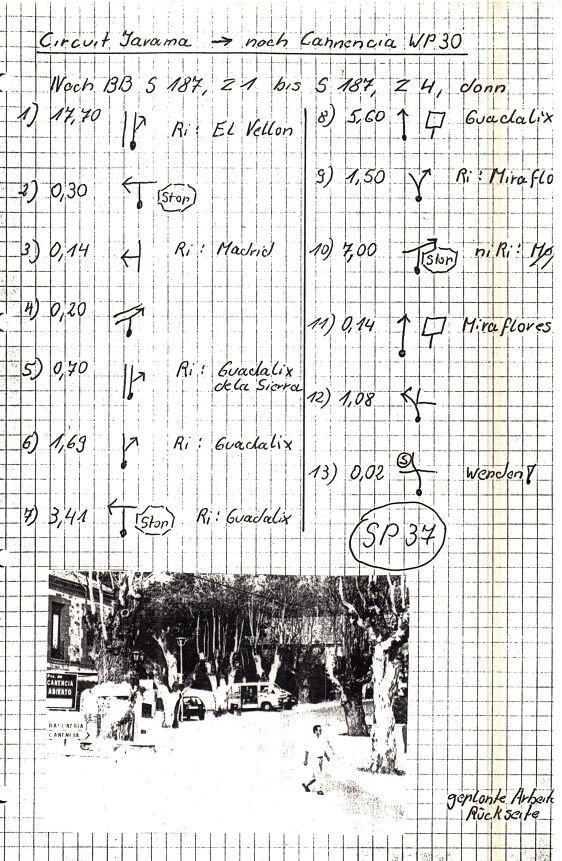 Circuit Jarama → nach Cannencia WP30
Nach BB S 187, Z 1 bis S 187, Z 4, dann
1) 17,70 Ri: EL Vellon
2) 0,30 Stop
3) 0,14 Ri: Madrid
4) 0,20
5) 0,70 Ri: Guadalix
de la Sierra
6) 1,69 Ri: Guadalix
7) 3,41 Stop Ri: Guadalix
8) 5,60 Guadalix
9) 1,50 Ri: Miraflo
10) 7,00 Stop ni Ri:
11) 0,14 Miraflores
12) 1,08
13) 0,02 S Wenden!
SP 37
Pto. de
CANENCIA
ABIERTO
CANENCIA
geplante Arbeit
Rückseite